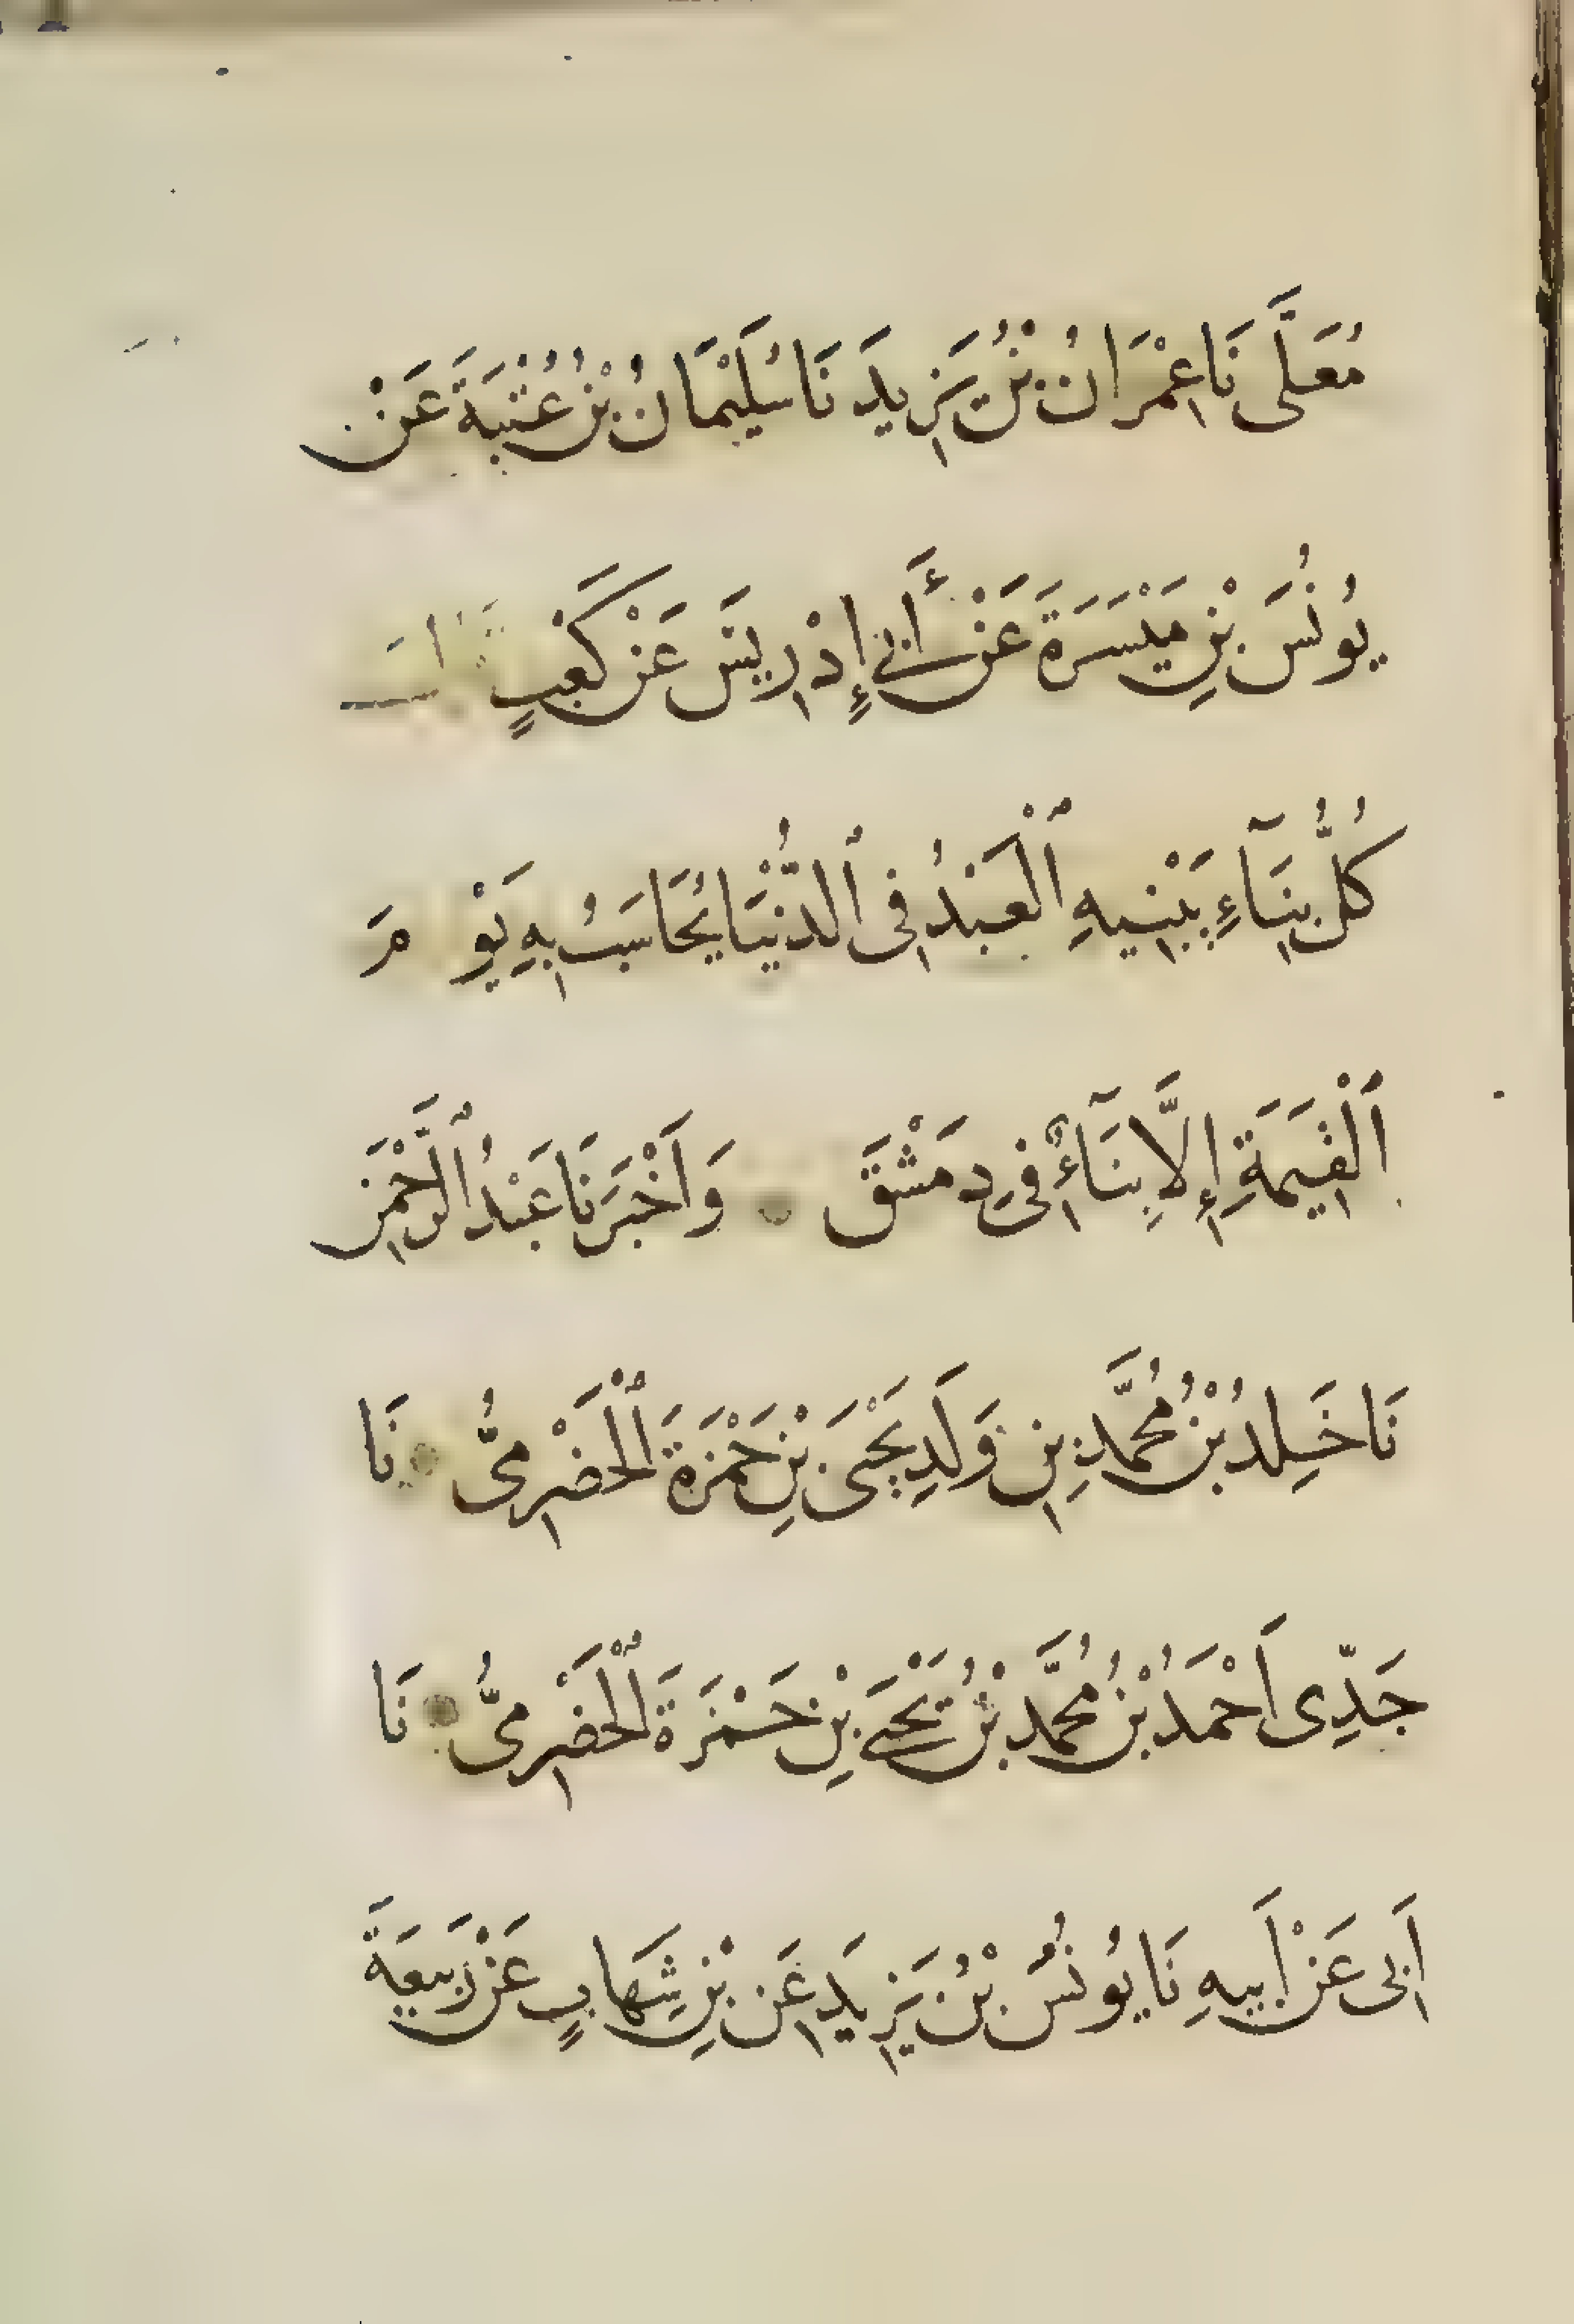 مُعَلَّى نَا عِمْرَانُ بْنُ يَزِيدَ نَا سُلَيْمَانُ بْنُ عُتْبَةَ عَنْ
يُونُسَ بْنِ مَيْسَرَةَ عَنْ أَبِي إِدْرِيسَ عَنْ كَعْبٍ
كُلُّ بِنَآءٍ يَبْنِيهِ ٱلْعَبْدُ فِى ٱلدُّنْيَا يُحَاسَبُ بِهِ يَوْ مَ
ٱلْقِيَمَةِ إِلَّا بِنَآءٌ فِى دِمَشْقَ وَاَخْبَرَنَا عَبْدُ ٱلرَّحْمَنِ
نَا خَلِدُ بْنُ مُحَمَّدِ بْنِ وَلَدِ يَحْيَى بْنِ حَمْزَةَ ٱلْحَضْرَمِىُّ نَا
جَدِّى اَحْمَدُ بْنُ مُحَمَّدِ بْنُ يَحْيَى بْنِ حَمْزَةَ ٱلْحَضْرَمِىُّ نَا
اَبِى عَنْ اَبِيهِ نَا يُونُسُ بْنُ يَزِيدَ عَنِ بْنِ شِهَابٍ عَنْ رَبِيعَةَ